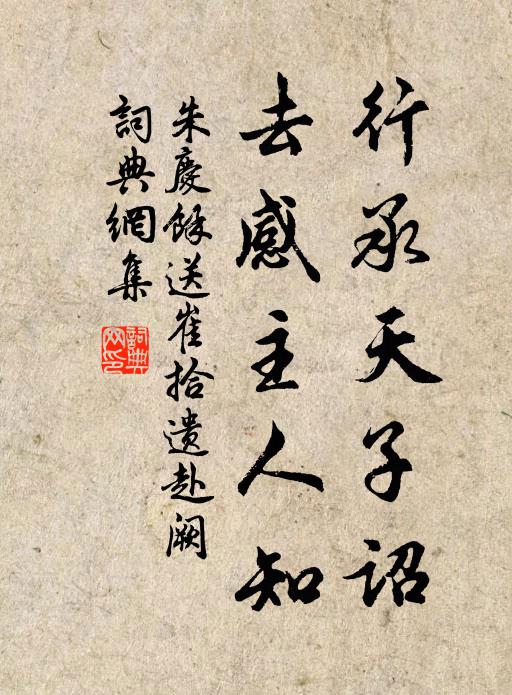 行承天子詔
去感主人知
朱慶餘送崔拾遺赴闕
詞典網集
詞典
网印